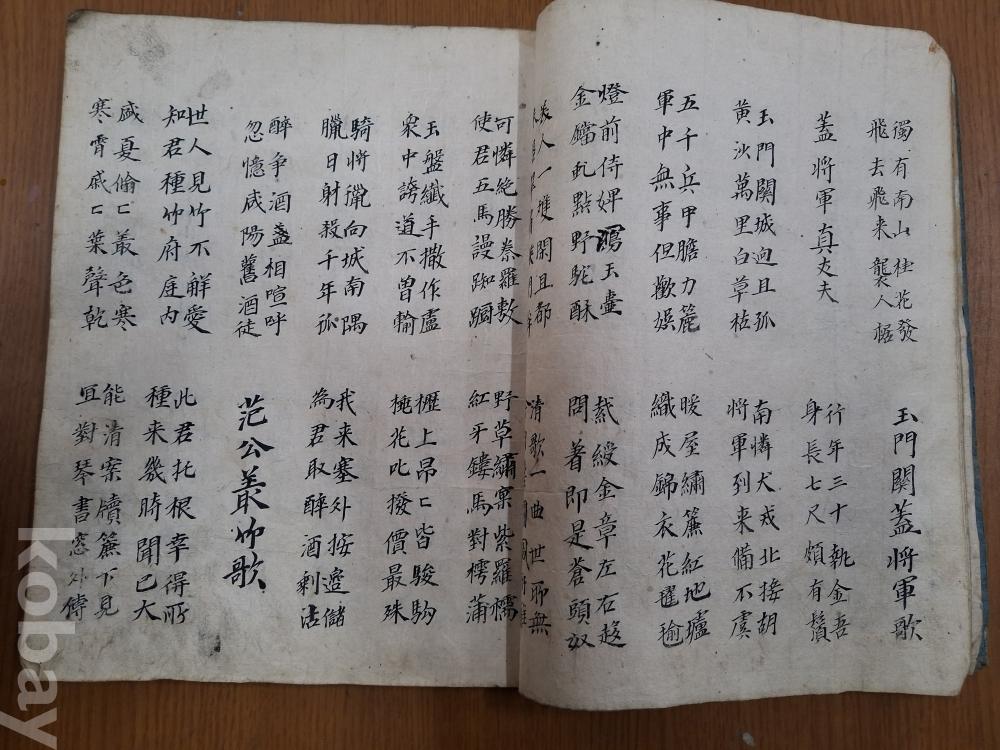 獨有南山桂花發
飛去飛来襲人裾
玉門関蓋将軍歌
蓋将軍真丈夫
行年三十執金吾
身長七尺頗有鬚
玉門関城迥且孤
黄沙萬里白草枯
南憐犬戎北接胡
将軍到来備不虞
五千兵甲膽力麁
軍中無事但歡娯
暖屋繡簾紅地爐
織成錦衣花
燈前侍婢瀉玉壷
金鐺乱點野駝酥
綬金章左右趍
問著即是蒼頭奴
美人一雙閑且都
清歌一曲世所無
可憐絶勝秦羅敷
使君五馬謾踟蹰
野草繡窠紫羅襦
紅牙鏤馬對樗蒲
玉盤纖手撒作盧
衆中誇道不曽輸
櫪上昂〻皆駿駒
桃花叱撥價最殊
騎将獵向城南隅
臘日射殺千年狐
我来塞外按邊儲
為君取醉酒剰沽
醉争酒盞相喧呼
忽憶咸陽舊酒徒
范公叢竹歌
世人見竹不解愛
知君種竹府庭内
此君托根幸得所
種来幾時聞已大
盛夏翛〻叢色寒
寒霄戚〻葉聲乾
能清案牘簾下見
宜對琴書窓外
kobay